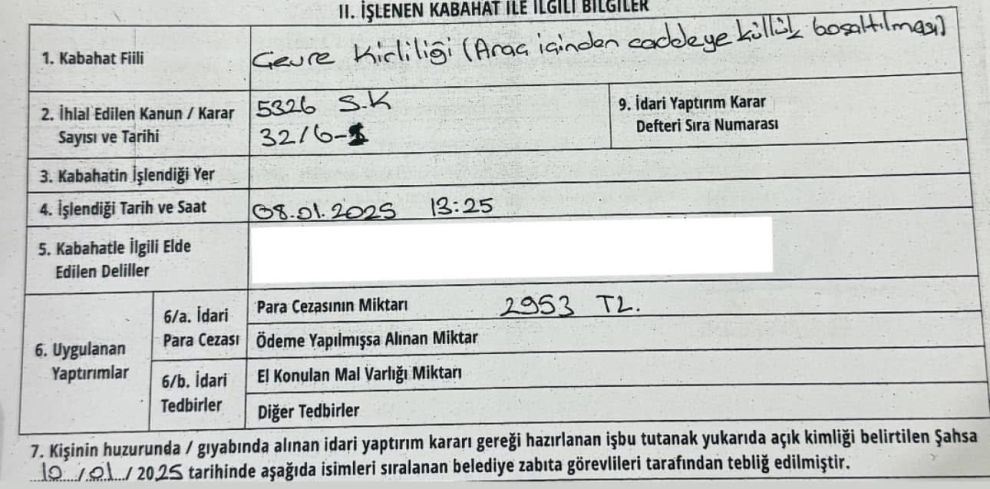 II. İŞLENEN KABAHAT İLE İLGİLİ BİLGİLER
1. Kabahat Fiili
Çevre Kirliliği (Araç içinden caddeye küllük boşaltılması)
2. İhlal Edilen Kanun / Karar
Sayısı ve Tarihi
5326 S.K
32/6-1
9. İdari Yaptırım Karar
Defteri Sıra Numarası
3. Kabahatin İşlendiği Yer
4. İşlendiği Tarih ve Saat
08.01.2025 13:25
5. Kabahatle İlgili Elde
Edilen Deliller
6. Uygulanan
Yaptırımlar
6/a. İdari
Para Cezası
Para Cezasının Miktarı
2953 TL.
Ödeme Yapılmışsa Alınan Miktar
6/b. İdari
Tedbirler
El Konulan Mal Varlığı Miktarı
Diğer Tedbirler
7. Kişinin huzurunda / gıyabında alınan idari yaptırım kararı gereği hazırlanan işbu tutanak yukarıda açık kimliği belirtilen Şahsa
10/01/2025 tarihinde aşağıda isimleri sıralanan belediye zabıta görevlileri tarafından tebliğ edilmiştir.